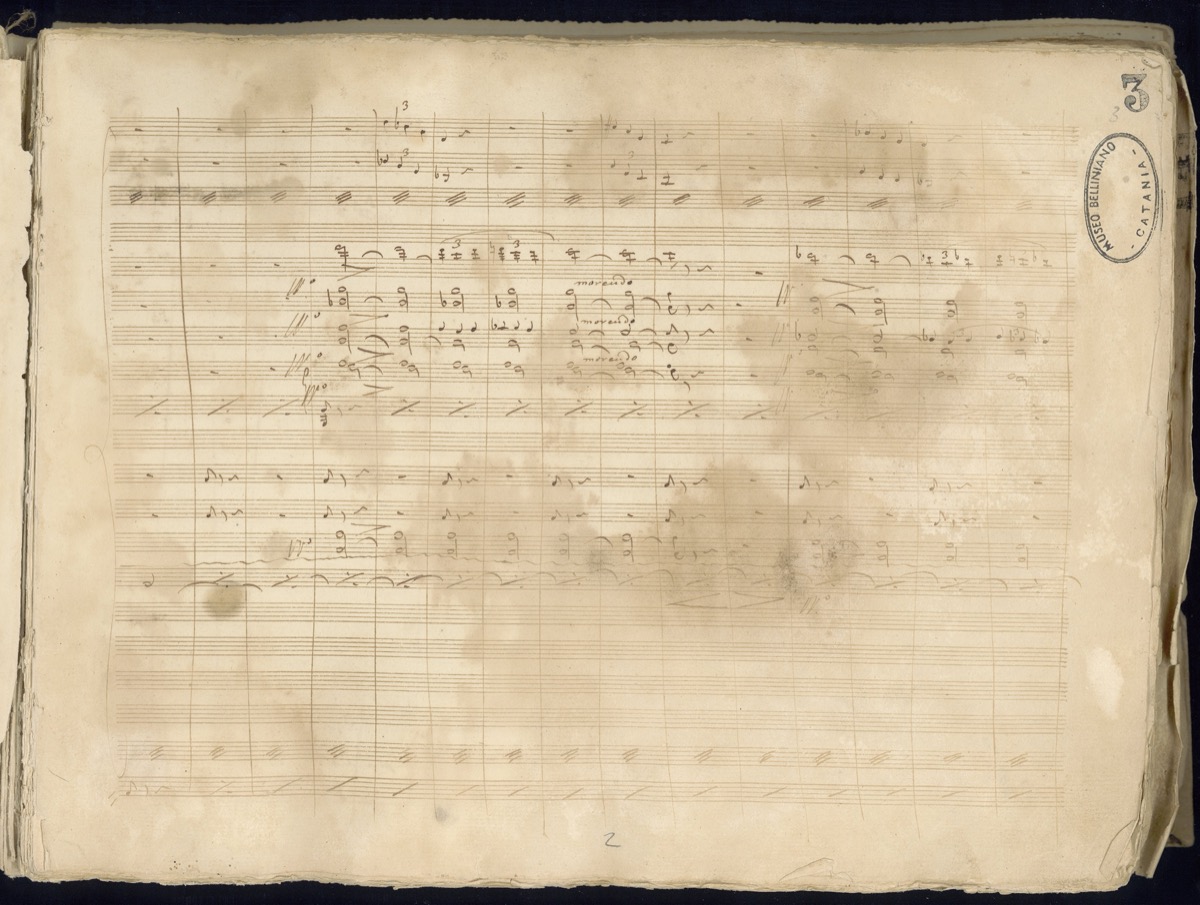 3
3
MUSEO BELLINIANO
- CATANIA -
3
3
3
3
3
3
morendo
morendo
morendo
2